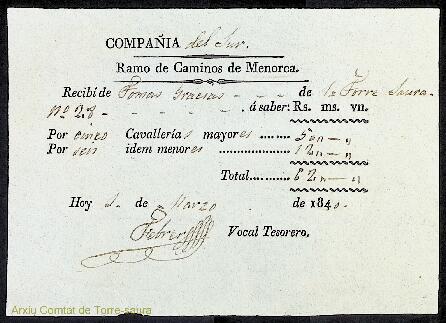 COMPAÑIA del Sur.
Ramo de Caminos de Menorca.
Recibí de Tomas - - - de la Torre Saura
Nº 28 - - - - - á saber: Rs. ms. vn.
Por cinco Cavallerías mayores ........ 50 „ — „
Por seis idem menores .................. 12 „ — „
Total.......... 62 „ — „
Hoy de Marzo de 1840.
Febrer Vocal Tesorero.
Arxiu Comtat de Torre-saura